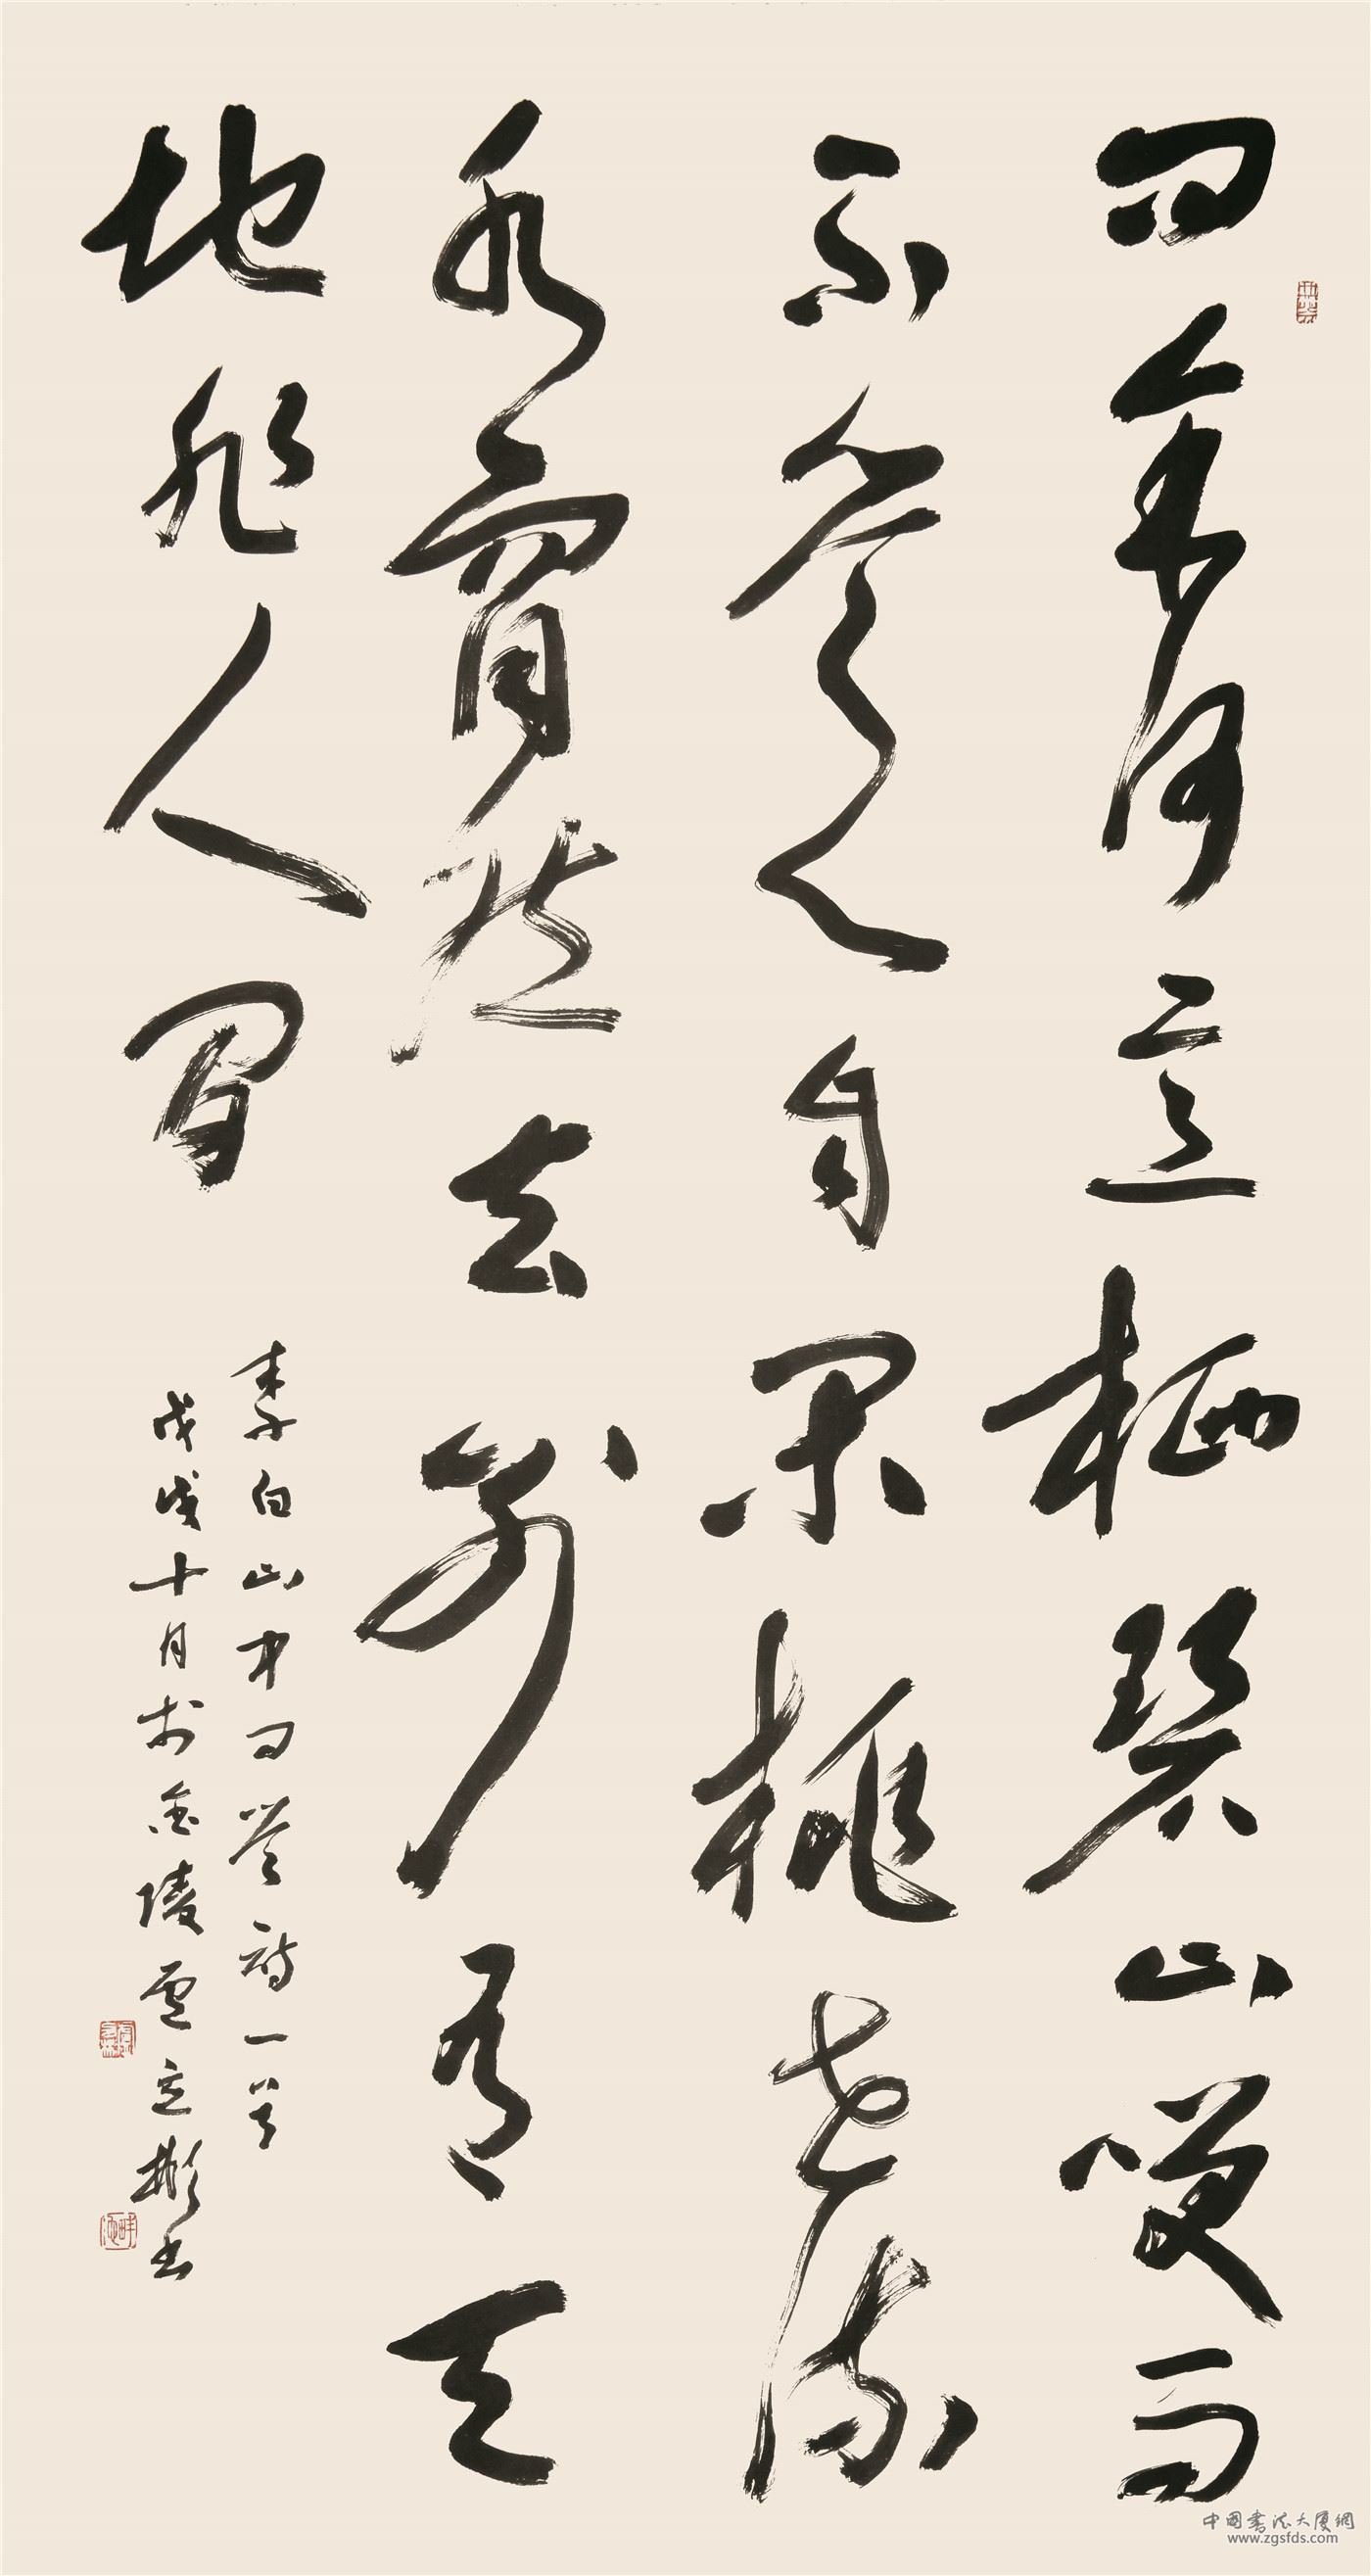 問余何意栖碧山笑而
不答心自閑桃花流
水窅然去別有天
地非人間
李白山中問答詩一首
戊戌十月於金陵 書
中国書法大厦網
www.zgsfds.com